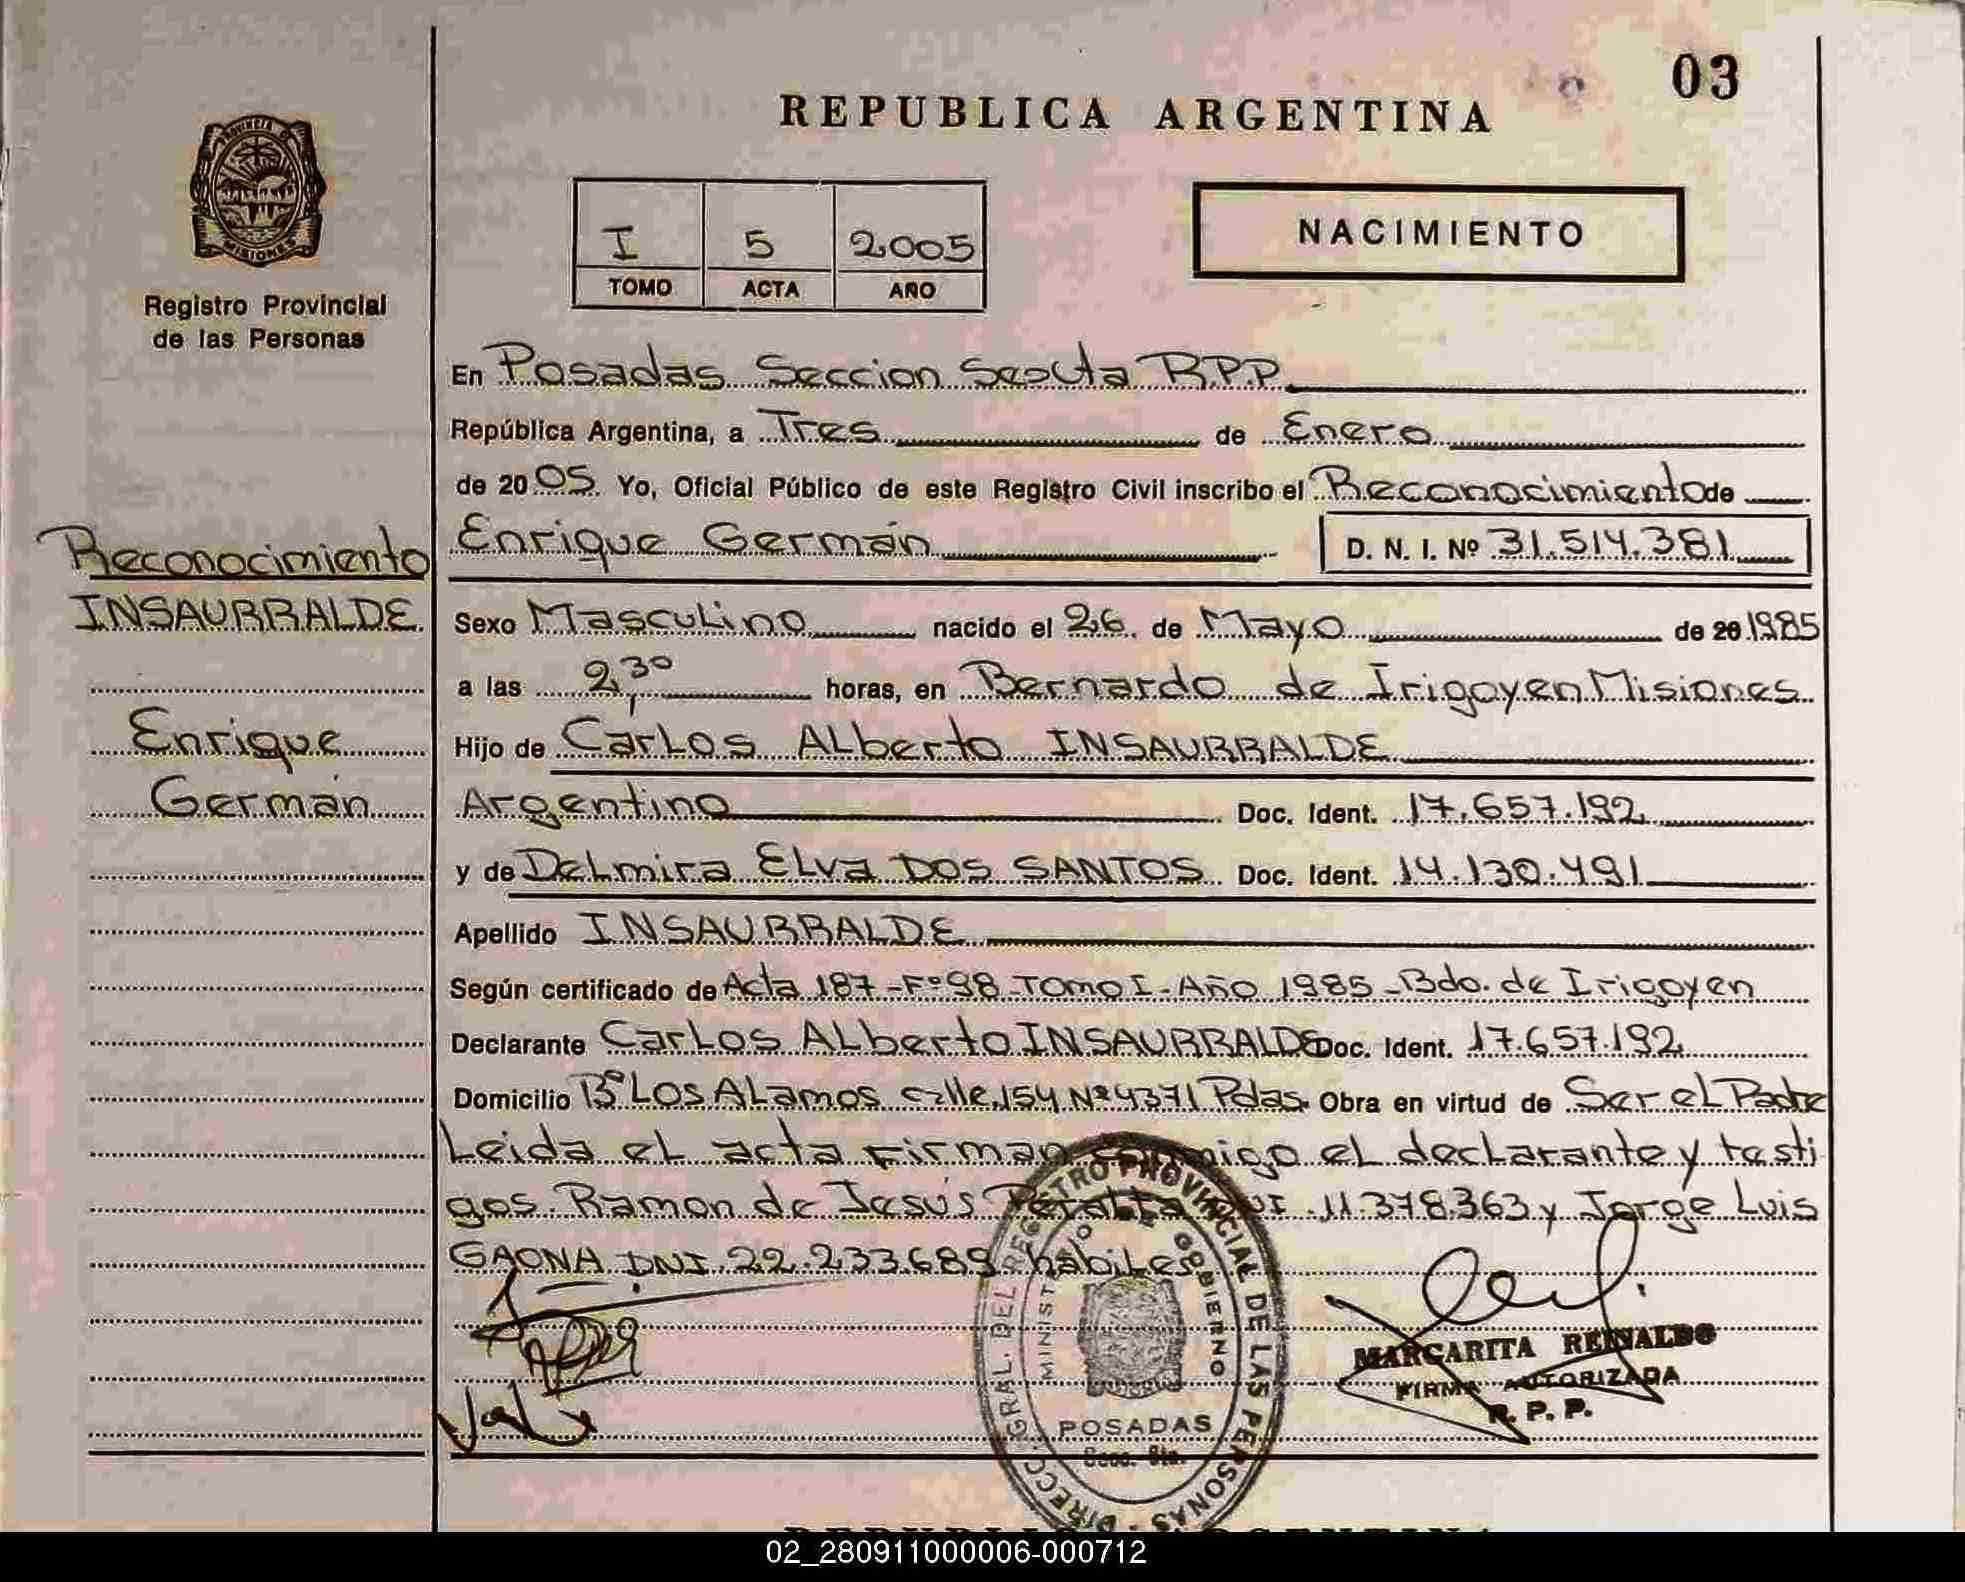 03
REPUBLICA ARGENTINA
PROVINCIA DE
MISIONES
Registro Provincial
de las Personas
I 5 2.005
TOMO ACTA AÑO
NACIMIENTO
En Posadas Seccion Sexta R.P.P.
República Argentina, a Tres de Enero
de 20 05. Yo, Oficial Público de este Registro Civil inscribo el Reconocimiento de
Enrique Germán D. N. I. Nº 31.514.381
Reconocimiento
INSAURRALDE
Enrique
Germán
Sexo Masculino nacido el 26 de Mayo de 20 1985
a las 2,30 horas, en Bernardo de Irigoyen Misiones
Hijo de Carlos Alberto INSAURRALDE
Argentino Doc. Ident. 17.657.192
y de Delmira Elva DOS SANTOS Doc. Ident. 14.130.491
Apellido INSAURRALDE
Según certificado de Acta 187-Fº98-Tomo I-Año 1985-Bdo. de Irigoyen
Declarante Carlos Alberto INSAURRALDE Doc. Ident. 17.657.192
Domicilio Bº Los Alamos calle 154 Nº 4371 Pdas. Obra en virtud de Ser el Padre
Leida el acta firman conmigo el declarante y testi
gos Ramon de Jesús Peralta DNI 11.378.363 y Jorge Luis
GAONA DNI 22.233.689 habiles
MARGARITA REINALDO
FIRMA AUTORIZADA
R. P. P.
DIRECC. GRAL. DEL REGISTRO PROVINCIAL DE LAS PERSONAS
MINISTERIO DE GOBIERNO
POSADAS
Secc. 6ta.
02_280911000006-000712